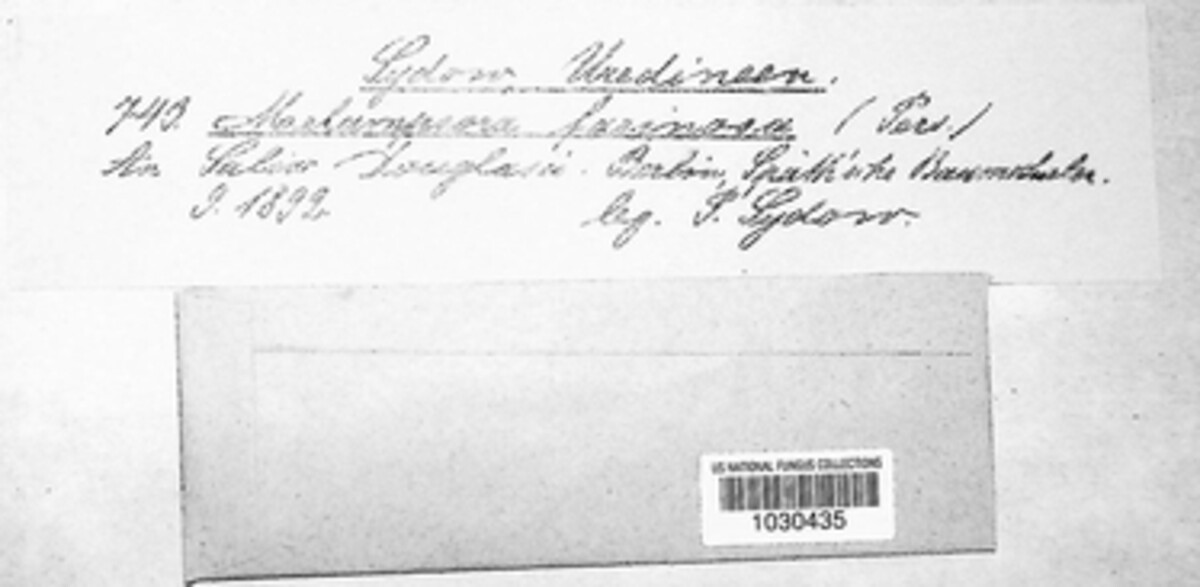 Sydow, Uredineen.
743. Melampsora farinosa (Pers.)
An Salix Douglasii. Berlin, Späth'sche Baumschulen.
9. 1892. leg. P. Sydow.
US NATIONAL FUNGUS COLLECTIONS
1030435